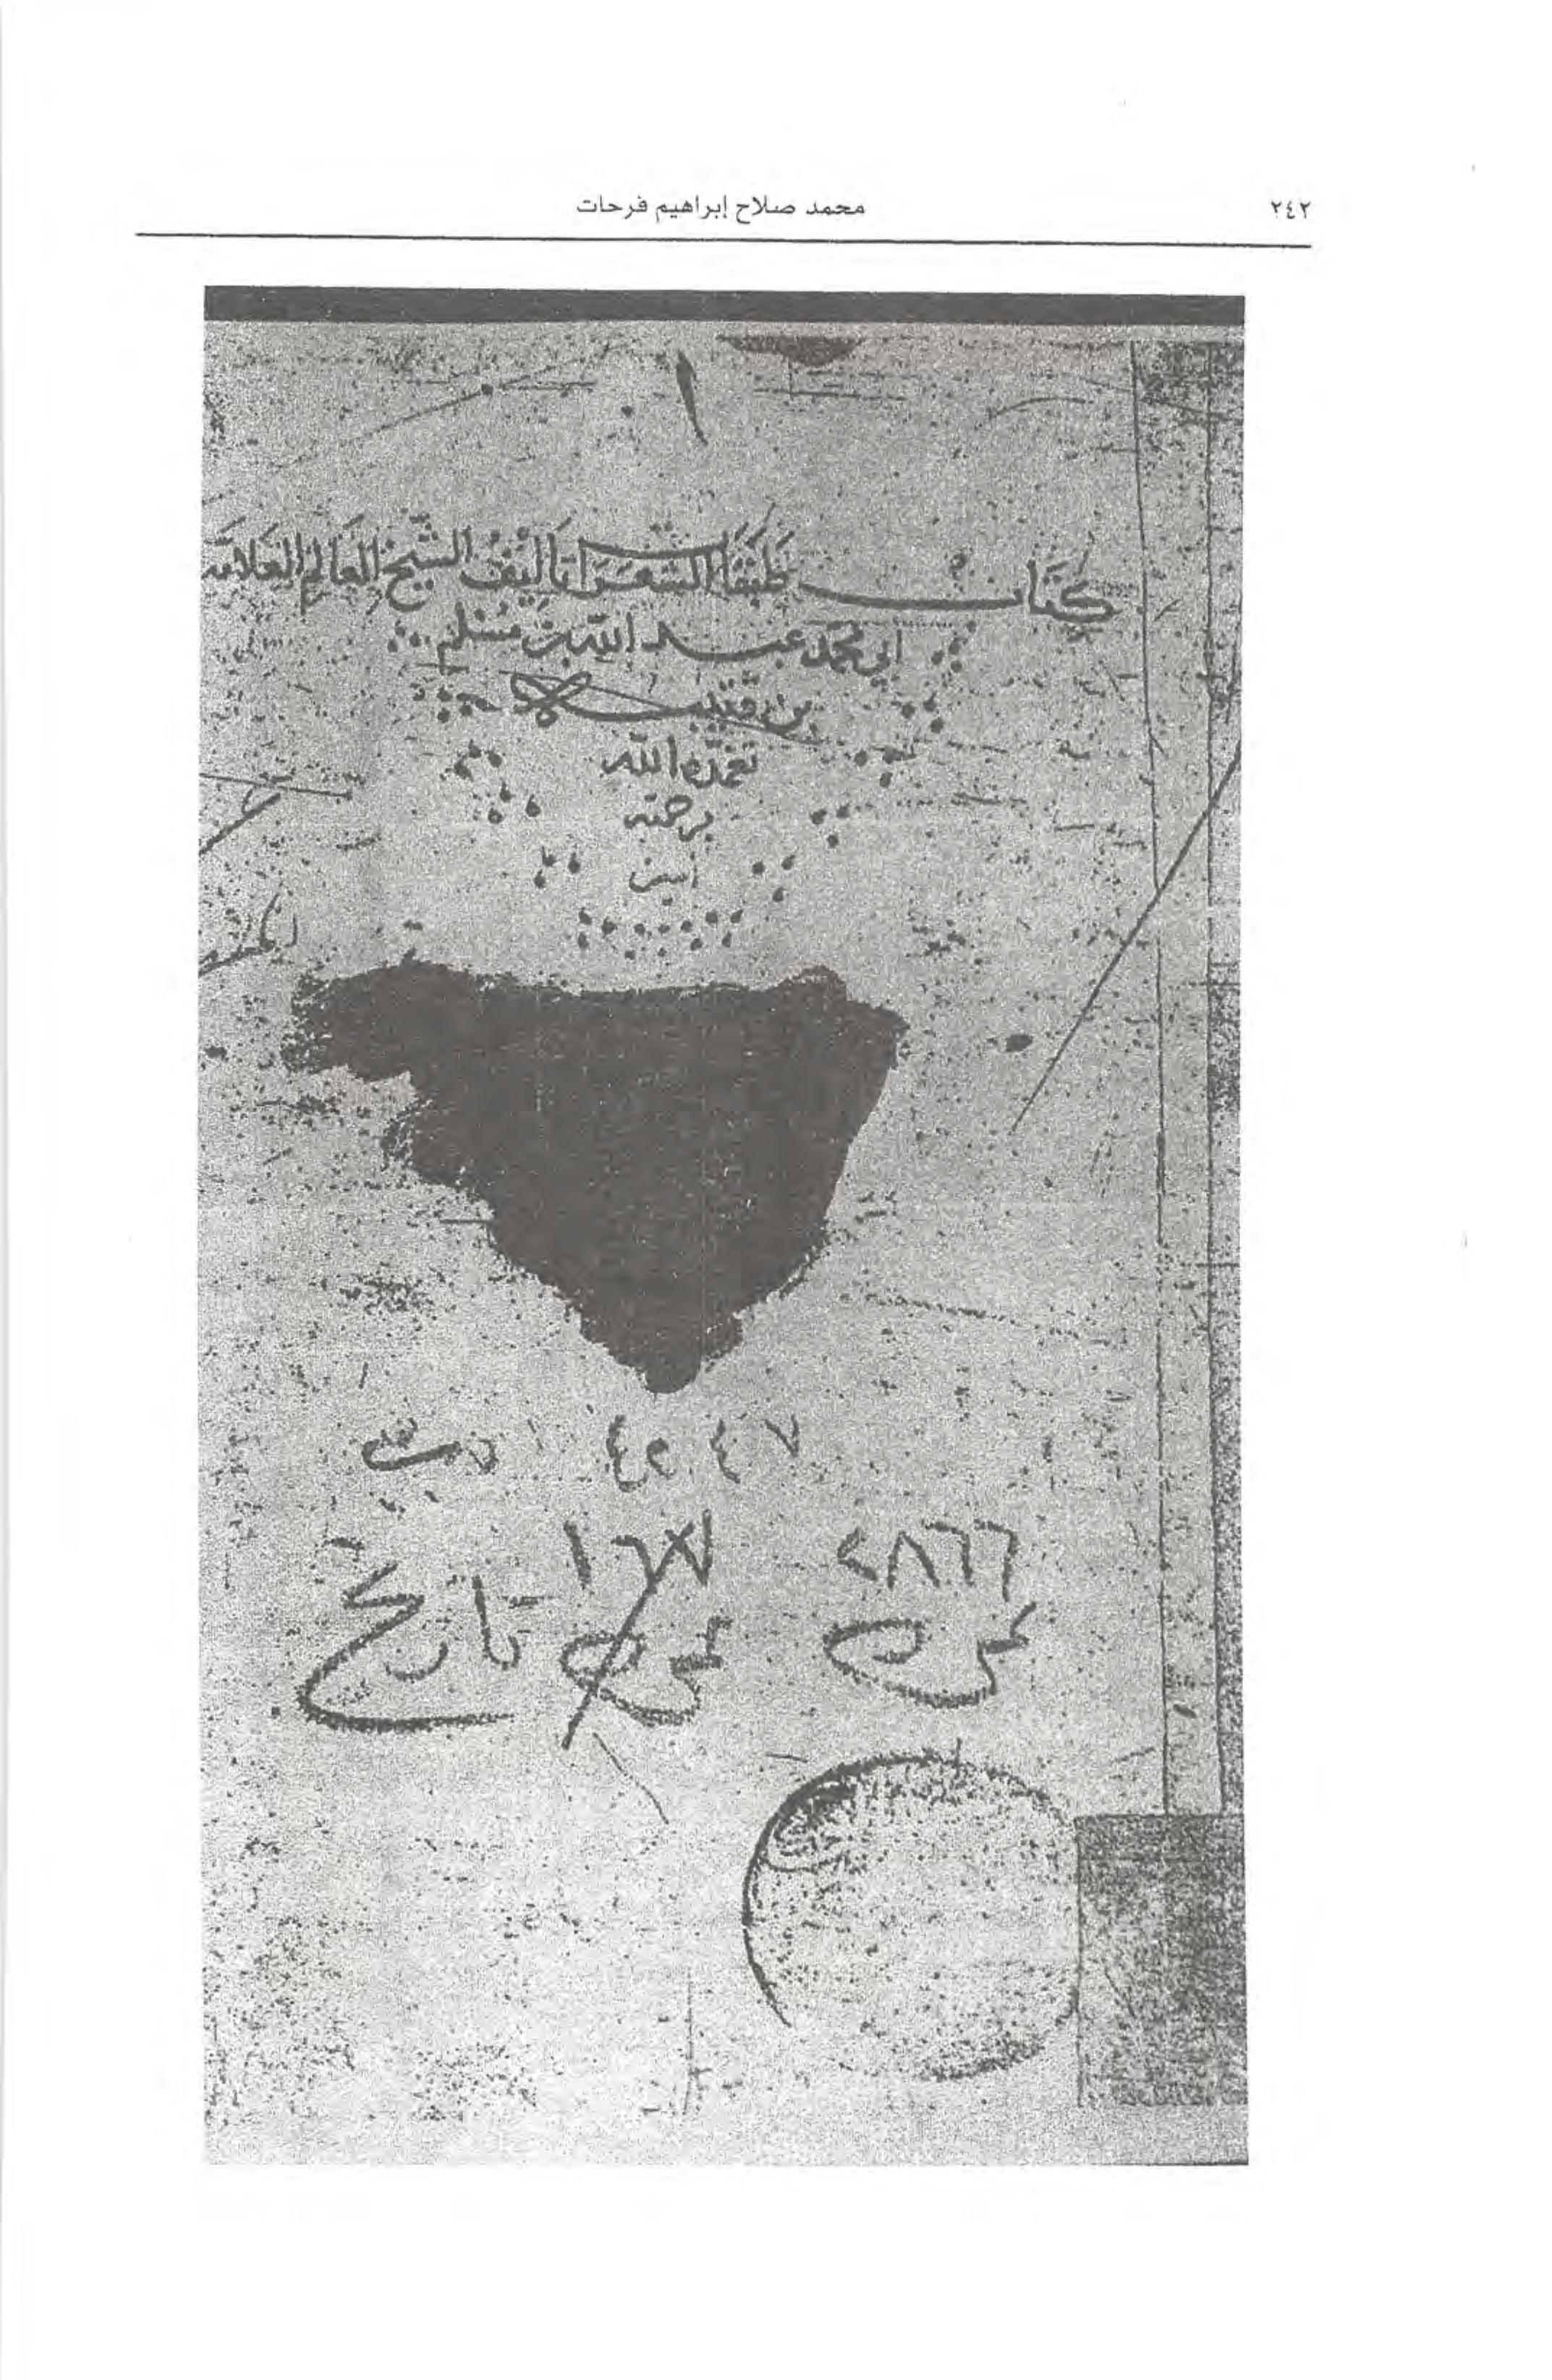 ٢٤٢
محمد صلاح إبراهيم فرحات
١
كتاب طبقات الشعرا تأليف الشيخ العالم العلامة
ابي محمد عبد الله بن مسلم
بن قتيبة
تغمده الله
برحمته
امين
٧ ٤
٢٨٦٦ ١٦٧
عمومي عمومي تاريخ